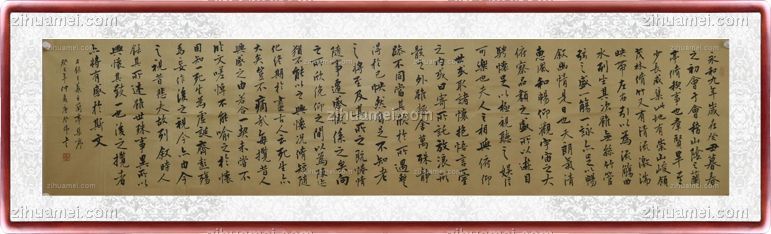 永和九年歲在癸丑暮春
之初會于會稽山陰之蘭
亭脩禊事也羣賢畢至
少長咸集此地有崇山峻領
茂林脩竹又有清流激湍
映帶左右引以為流觴曲
水列坐其次雖無絲竹管
弦之盛一觴一詠亦足以暢
敘幽情是日也天朗氣清
惠風和暢仰觀宇宙之大
俯察品類之盛所以遊目
騁懷足以極視聽之娛信
可樂也夫人之相與俯仰
一世或取諸懷抱悟言一室
之內或因寄所託放浪形
骸之外雖趣舍萬殊靜
躁不同當其欣於所遇蹔
得於己快然自足不知老
之將至及其所之既惓情
隨事遷感慨係之矣向
之所欣俛仰之間以為陳迹
猶不能不以之興懷況脩短隨
化終期於盡古人云死生亦
大矣豈不痛哉每攬昔人
興感之由若合一契未嘗不
臨文嗟悼不能喻之於懷
固知一死生為虛誕齊彭殤
為妄作後之視今亦由今
之視昔悲夫故列敘時人
錄其所述雖世殊事異所以
興懷其致一也後之攬者
亦將有感於斯文
王羲之蘭亭集序
zihuamei.com
zihuamei.com
zihuamei.com
zihuamei.com
zihuamei.com
zihuamei.com
zihuamei.com
zihuamei.com
zihuamei.com